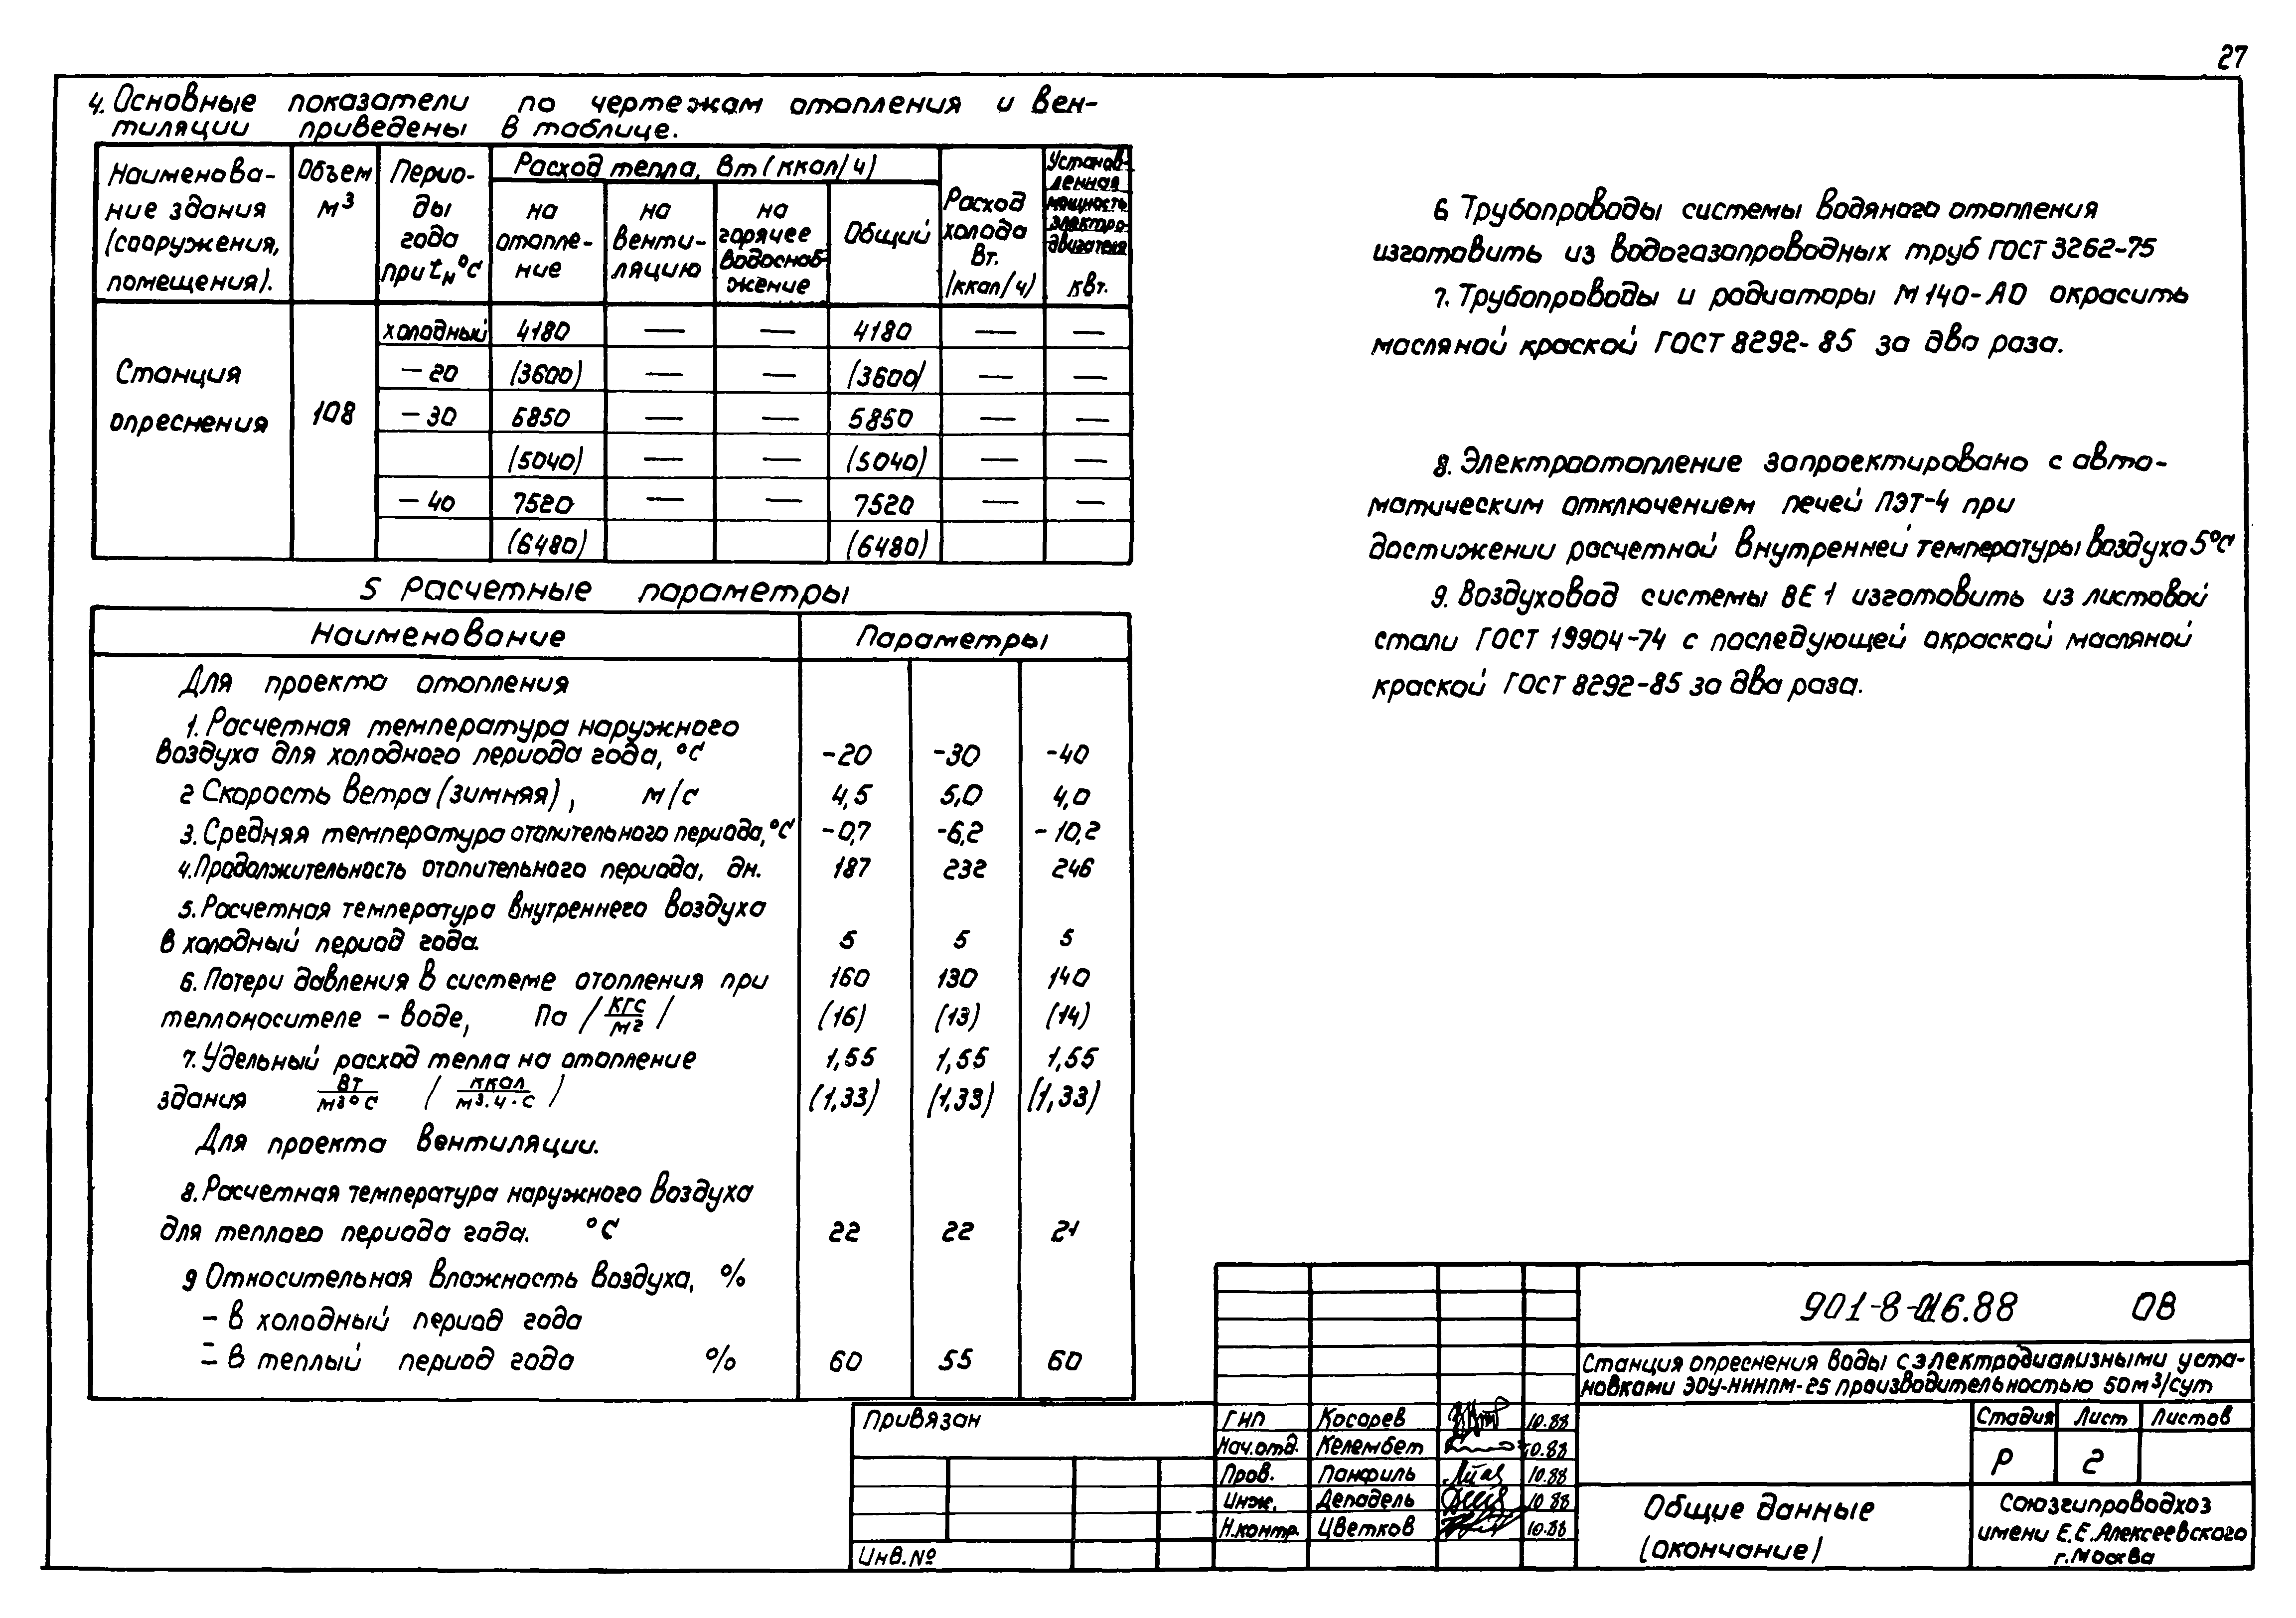 27
4. Основные показатели по чертежам отопления и вен-
тиляции приведены в таблице.
Наименова-
ние здания
(сооружения,
помещения).
Объем
м³
Перио-
ды
года
при tн°С
Расход тепла, Вт (ккал/ч)
на
отопле-
ние
на
венти-
ляцию
на
горячее
водоснаб-
жение
Общий
Расход
холода
Вт.
(ккал/ч)
Установ-
ленная
мощность
электро-
двигателя
квт.
Станция
опреснения
108
холодный 4180 — — 4180 — —
-20 (3600) — — (3600) — —
-30 5850 — — 5850 — —
(5040) — — (5040) — —
-40 7520 — — 7520 — —
(6480) (6480)
5 Расчетные параметры
Наименование Параметры
Для проекта отопления
1. Расчетная температура наружного
воздуха для холодного периода года, °С -20 -30 -40
2 Скорость ветра (зимняя), м/с 4,5 5,0 4,0
3. Средняя температура отопительного периода, °С -0,7 -6,2 -10,2
4. Продолжительность отопительного периода, дн. 187 232 246
5. Расчетная температура внутреннего воздуха
в холодный период года. 5 5 5
6. Потери давления в системе отопления при 160 130 140
теплоносителе - воде, Па /кгс/м²/ (16) (13) (14)
7. Удельный расход тепла на отопление 1,55 1,55 1,55
здания Вт/м³°С (ккал/м³.ч.с) (1,33) (1,33) (1,33)
Для проекта вентиляции.
8. Расчетная температура наружного воздуха
для теплого периода года. °С 22 22 21
9 Относительная влажность воздуха, %
- в холодный период года
- в теплый период года % 60 55 60
6 Трубопроводы системы водяного отопления
изготовить из водогазопроводных труб ГОСТ 3262-75
7. Трубопроводы и радиаторы М140-АО окрасить
масляной краской ГОСТ 8292-85 за два раза.
8. Электроотопление запроектировано с авто-
матическим отключением печей ПЭТ-4 при
достижении расчетной внутренней температуры воздуха 5°С
9. Воздуховод системы ВЕ1 изготовить из листовой
стали ГОСТ 19904-74 с последующей окраской масляной
краской ГОСТ 8292-85 за два раза.
901-8-016.88 ОВ
Станция опреснения воды с электродиализными уста-
новками ЭОУ-НИИПМ-25 производительностью 50м³/сут
Привязан
Инв. №
ГИП Косарев 10.88
Нач.отд. Келембет 10.88
Пров. Панфиль 10.88
Инж. Депадель 10.88
Н.контр. Цветков 10.88
Стадия Лист Листов
Р 2
Общие данные
(окончание)
Союзгипроводхоз
имени Е.Е.Алексеевского
г.Москва